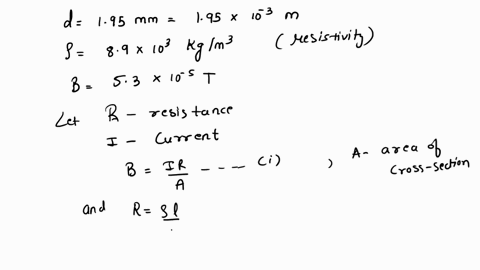 d = 1.95 mm = 1.95 × 10⁻³ m
ρ = 8.9 × 10³ Kg/m³ (resistivity)
B = 5.3 × 10⁻⁵ T
Let R - resistance
I - Current
B = IR/A --- (i) , A - area of cross-section
and R = ρl